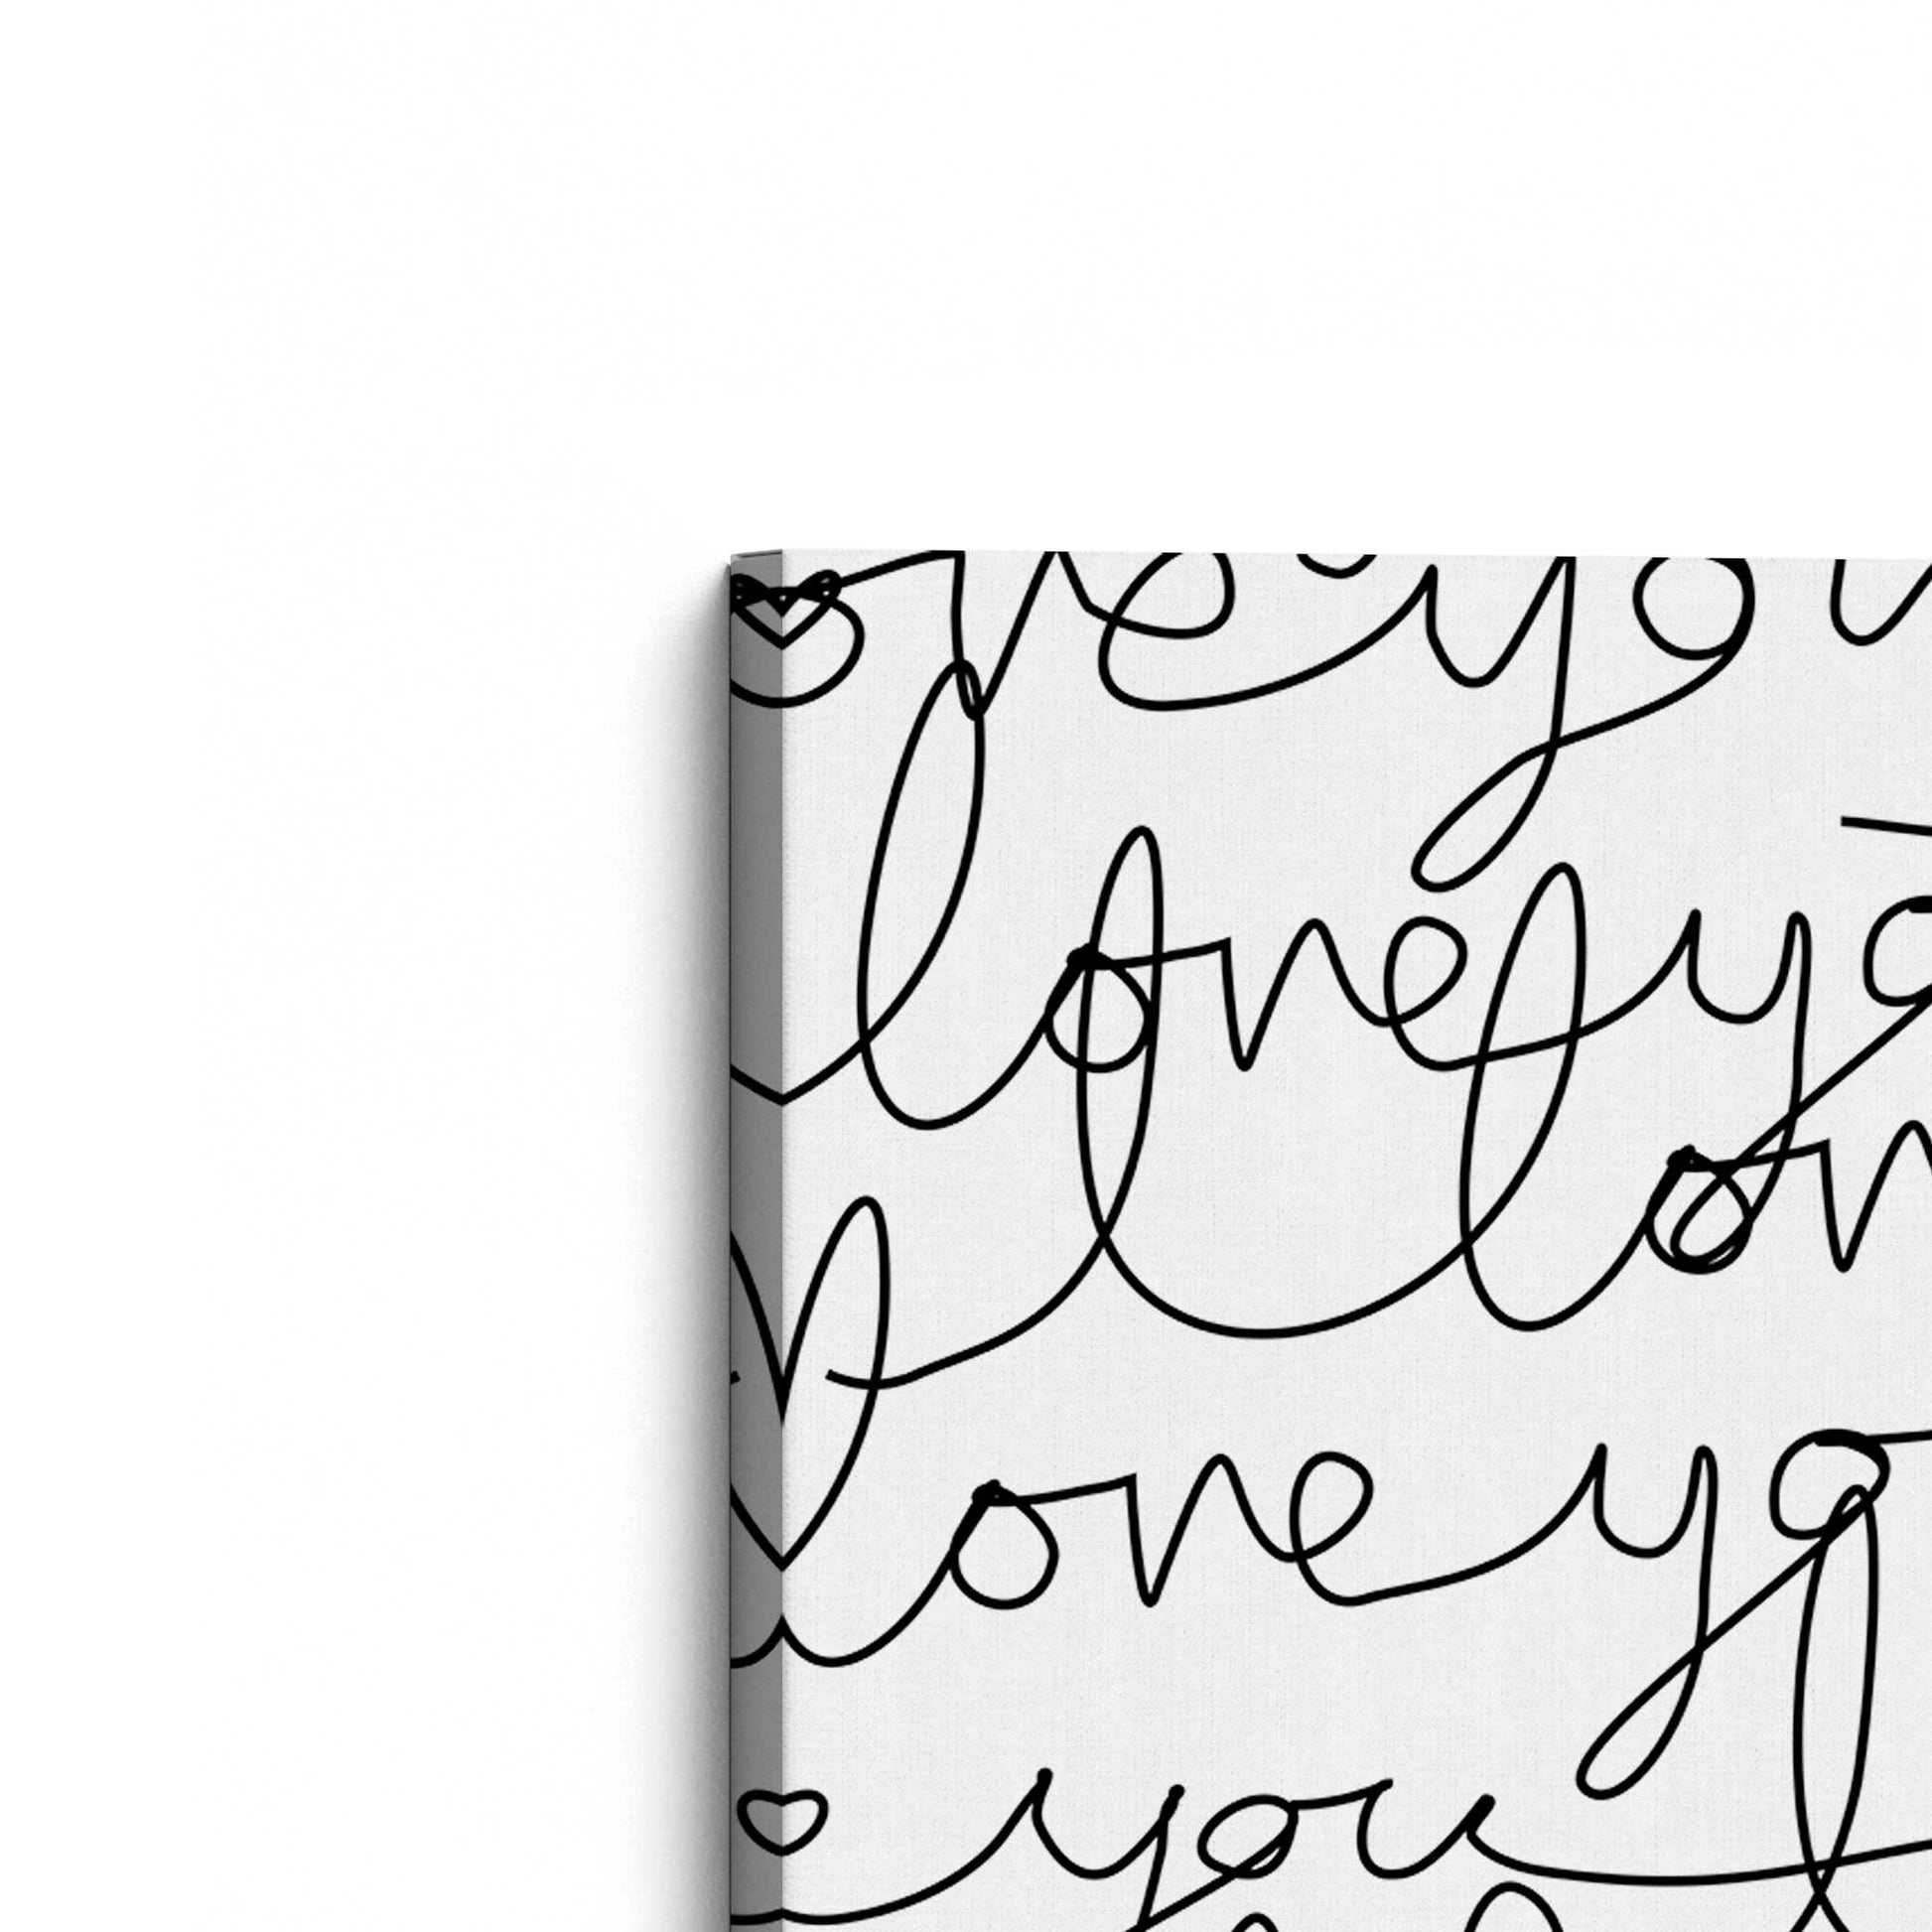 ove you
love yo
lov
love yo
you